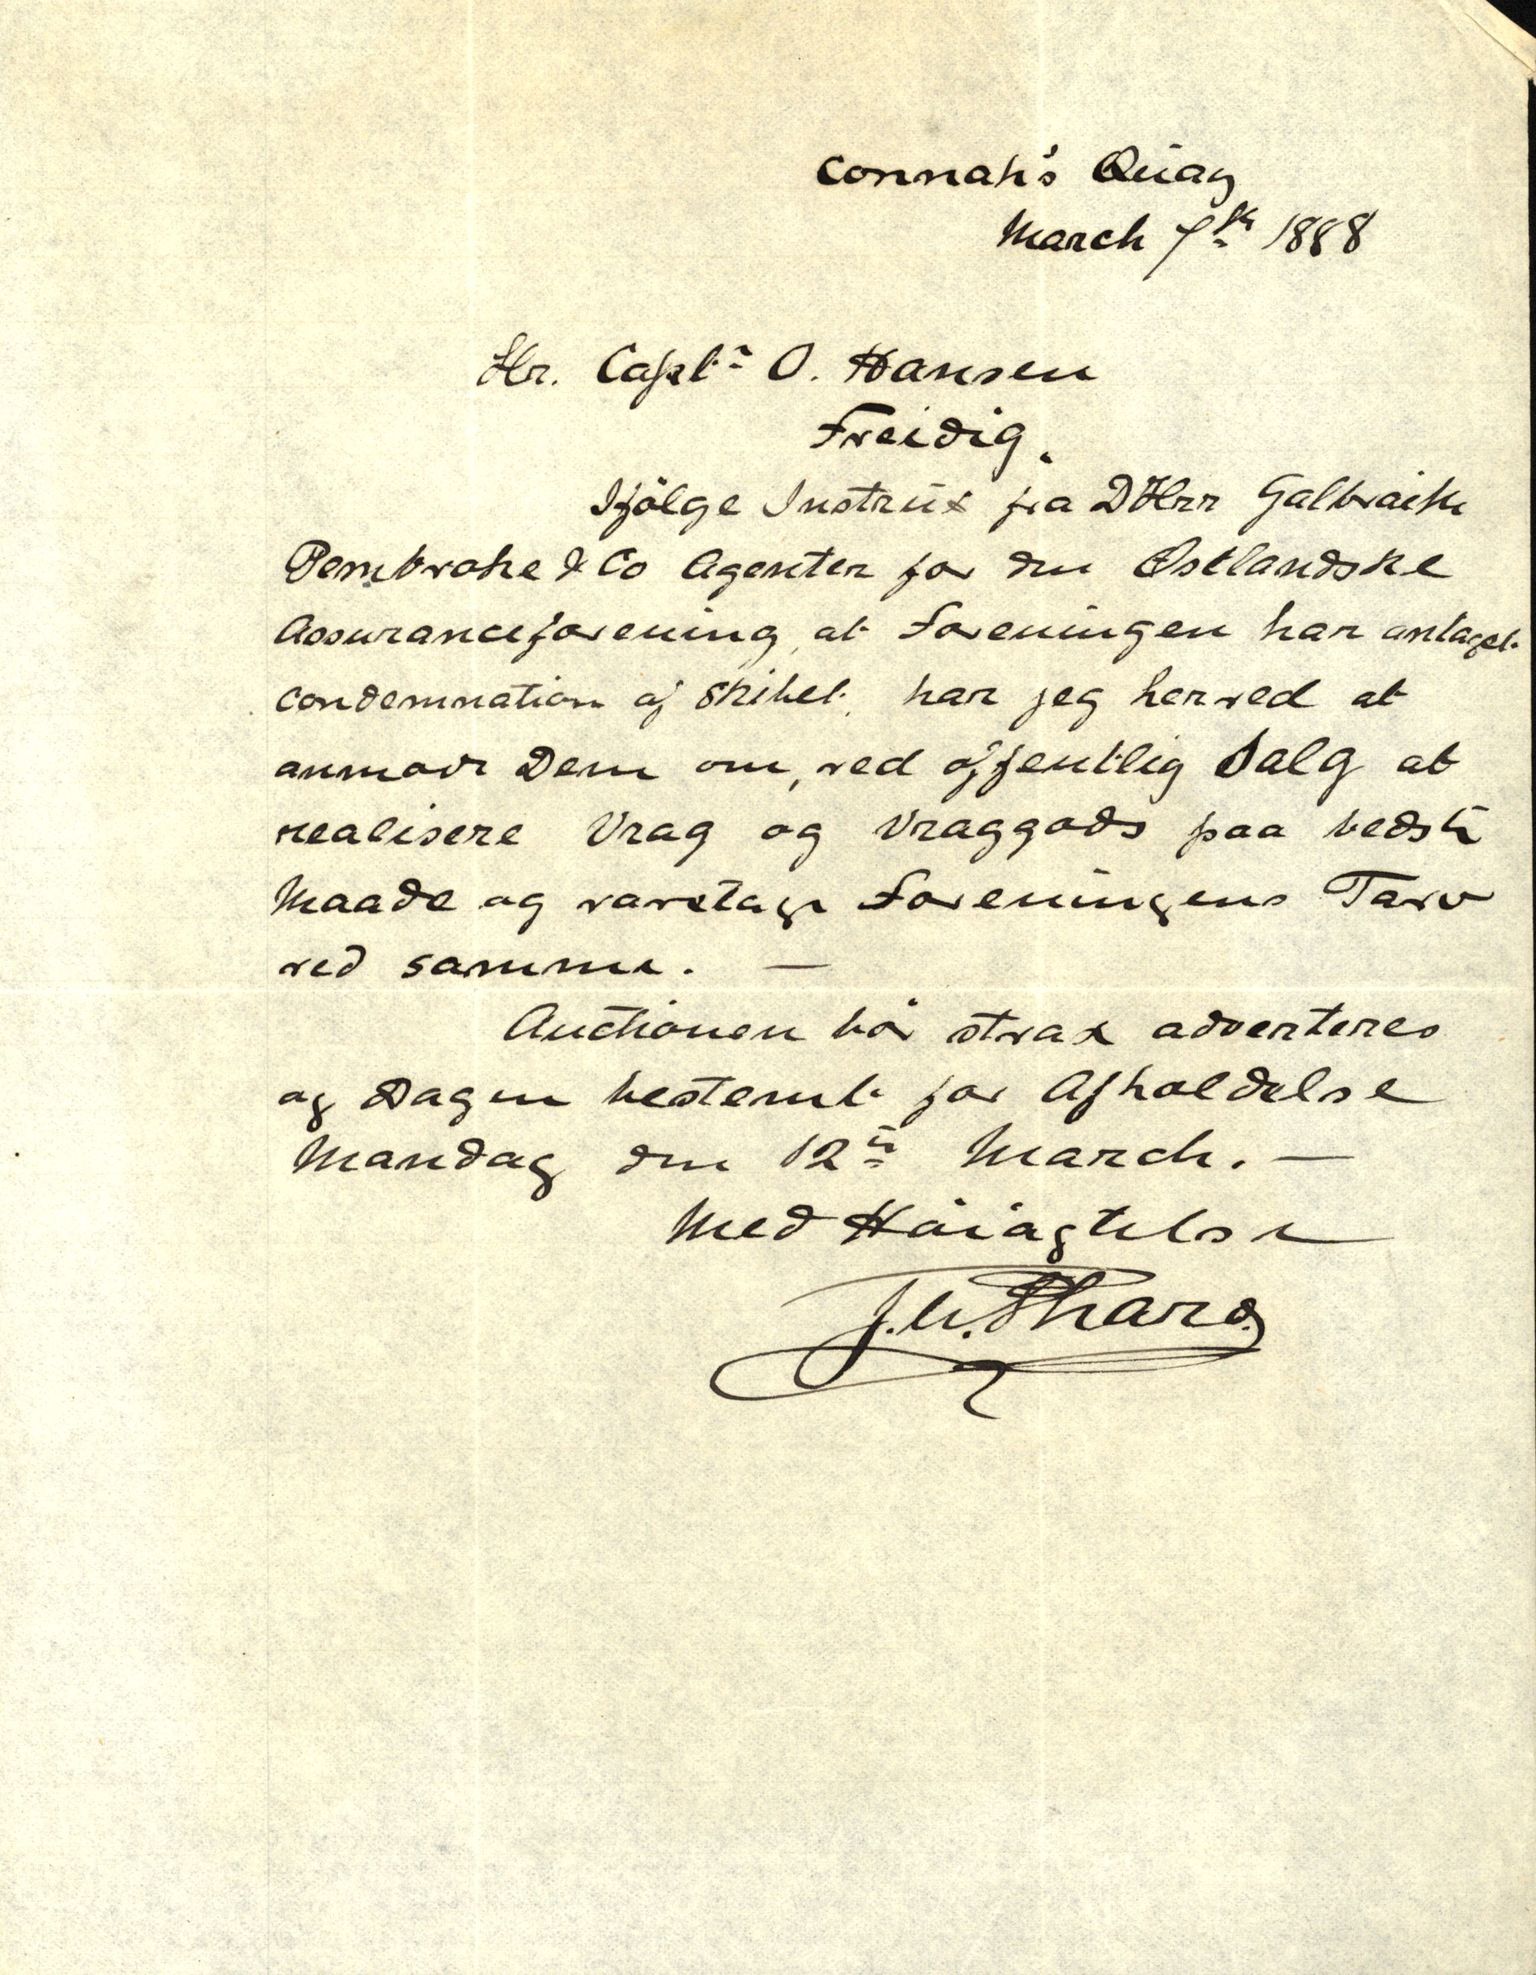 Connah's Quay
March 7th 1888
Hr. Captn O. Hansen
Freidig.
Ifölge Instrux fra DHrr Galbraith
Pembroke & Co Agenter for den Østlandske
Assuranceforening, at Foreningen har antaget
condemnation af skibet, har jeg herved at
anmode Dem om, ved offentlig Salg at
realisere Vrag og Vraggods paa bedste
Maade og varetage Foreningens Tarv
ved samme. —
Auctionen bör strax adverteres
og Dagen bestemt for Afholdelse
Mandag den 12te March. —
Med Höiagtelse